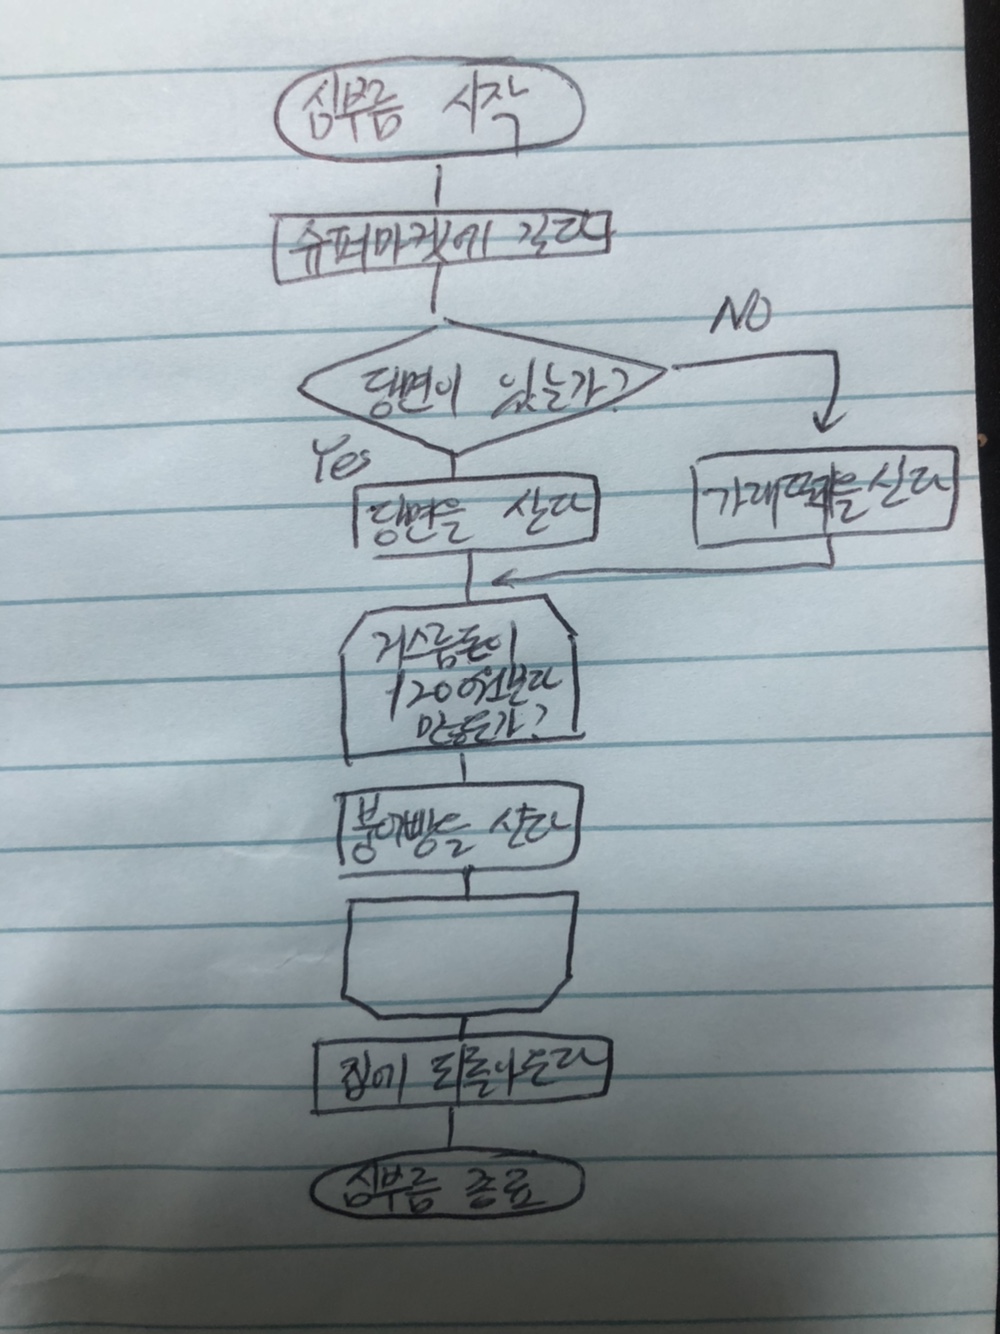 심부름 시작
슈퍼마켓에 간다
NO
당면이 있는가?
Yes
당면을 산다
가래떡을 산다
거스름돈이
120원보다
많은가?
붕어빵을 산다
집에 되돌아온다
심부름 종료